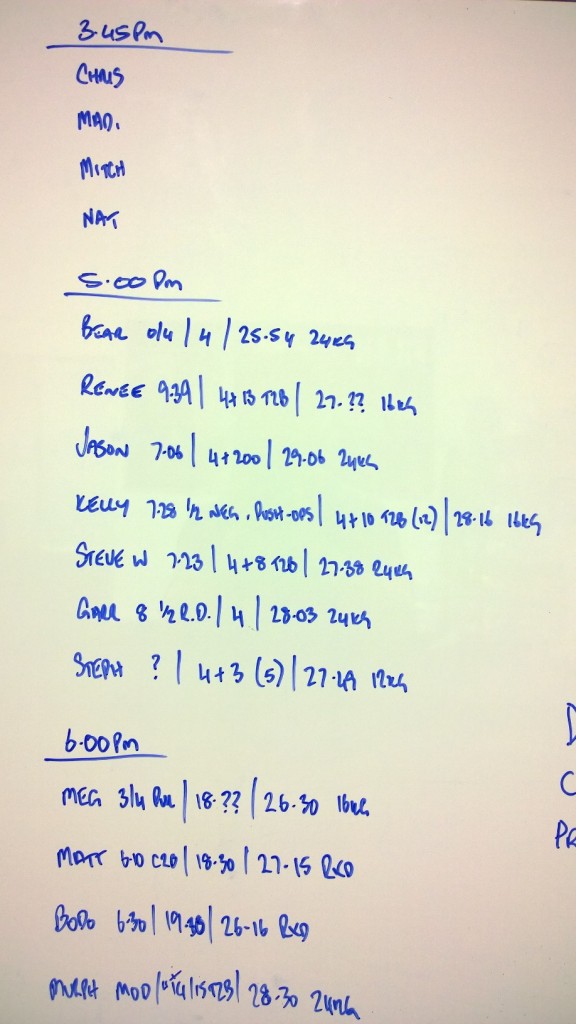 3.45Pm
CHRIS
MAD.
MITCH
NAT
5.00 Pm
BEAR 0/4 | 4 | 25.54 24KG
RENEE 9.39 | 4+13 T2B | 27.?? 16KG
JASON 7.06 | 4+200 | 29.06 24KG
KELLY 7.28 1/2 NEG. PUSH-OPS | 4+10 T2B (12) | 28.16 16KG
STEVE W 7.23 | 4+8 T2B | 27.38 24KG
GARR 8 1/2 R.D. | 4 | 28.03 24KG
STEPH ? | 4+3 (5) | 27.49 12KG
6.00 Pm
MEG 3/4 | 18.?? | 26.30 16KG
MATT 6.10 C2B | 18.30 | 27.15 RXD
BODO 6.30 | 19.30 | 26.16 RXD
MURPH MOD | 15 T2B | 28.30 24KG
C
PR